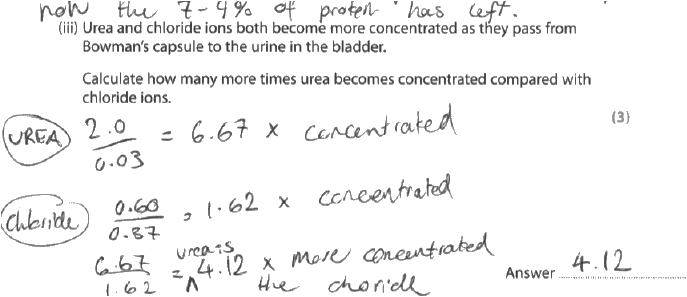 now the 7-4% of protein has left.
(iii) Urea and chloride ions both become more concentrated as they pass from
Bowman's capsule to the urine in the bladder.
Calculate how many more times urea becomes concentrated compared with
chloride ions.
(3)
UREA 2.0 / 0.03 = 6.67 x concentrated
Chloride 0.60 / 0.37 = 1.62 x concentrated
6.67 / 1.62 = urea is 4.12 x more concentrated
the choride
Answer 4.12